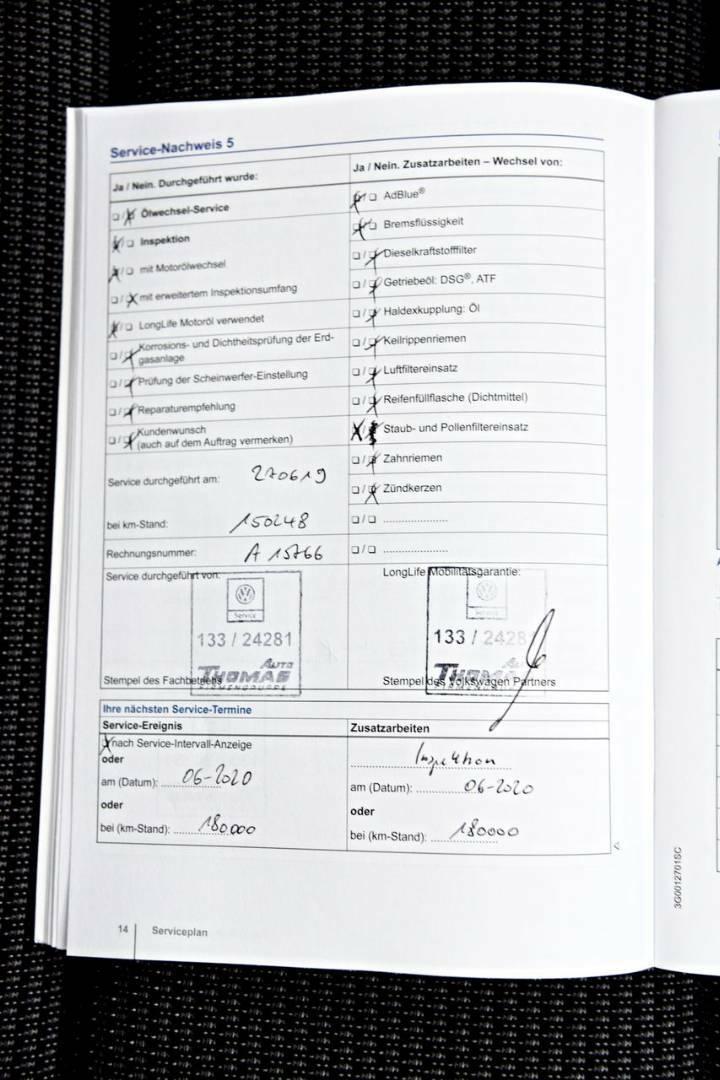 Service-Nachweis 5
Ja / Nein. Durchgeführt wurde:
❑ / ❑ Ölwechsel-Service
❑ / ❑ Inspektion
❑ / ❑ mit Motorölwechsel
❑ / ❑ mit erweitertem Inspektionsumfang
❑ / ❑ LongLife Motoröl verwendet
❑ / ❑ Korrosions- und Dichtheitsprüfung der Erd-
gasanlage
❑ / ❑ Prüfung der Scheinwerfer-Einstellung
❑ / ❑ Reparaturempfehlung
❑ / ❑ Kundenwunsch
(auch auf dem Auftrag vermerken)
Service durchgeführt am: 270619
bei km-Stand: 150248
Rechnungsnummer: A 15766
Service durchgeführt von:
Service
133 / 24281
AUTO
THOMAS
FIRMENGRUPPE
Stempel des Fachbetriebs
Ja / Nein. Zusatzarbeiten – Wechsel von:
❑ / ❑ AdBlue®
❑ / ❑ Bremsflüssigkeit
❑ / ❑ Dieselkraftstofffilter
❑ / ❑ Getriebeöl: DSG®, ATF
❑ / ❑ Haldexkupplung: Öl
❑ / ❑ Keilrippenriemen
❑ / ❑ Luftfiltereinsatz
❑ / ❑ Reifenfüllflasche (Dichtmittel)
❑ / ❑ Staub- und Pollenfiltereinsatz
❑ / ❑ Zahnriemen
❑ / ❑ Zündkerzen
❑ / ❑ .....................
❑ / ❑ .....................
LongLife Mobilitätsgarantie:
Service
133 / 2428
AUTO
THOMAS
Stempel des Volkswagen Partners
Ihre nächsten Service-Termine
Service-Ereignis
❑ nach Service-Intervall-Anzeige
oder
am (Datum): 06-2020
oder
bei (km-Stand): 180.000
Zusatzarbeiten
Inspektion
am (Datum): 06-2020
oder
bei (km-Stand): 180000
3G0012701SC
14 Serviceplan